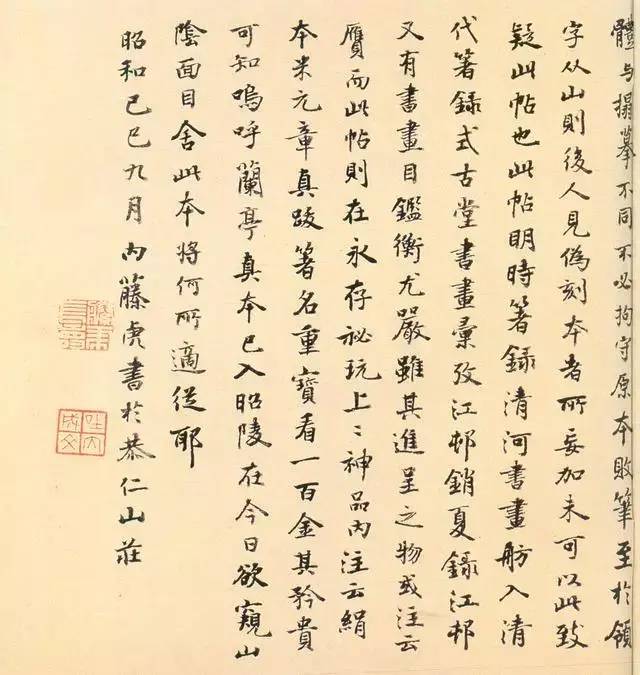 體与搨摹不同不必拘守原本敗筆至於領
字从山則後人見偽刻本者所妄加未可以此致
疑此帖也此帖明時箸錄清河書畫舫入清
代箸錄式古堂書畫彙攷江邨銷夏錄江邨
又有書畫目鑑衡尤嚴雖其進呈之物或注云
贗而此帖則在永存祕玩上〻神品內注云絹
本米元章真跋箸名重寶看一百金其矜貴
可知嗚呼蘭亭真本已入昭陵在今日欲窺山
陰面目舍此本將何所適從耶
昭和己巳九月內藤虎書於恭仁山莊